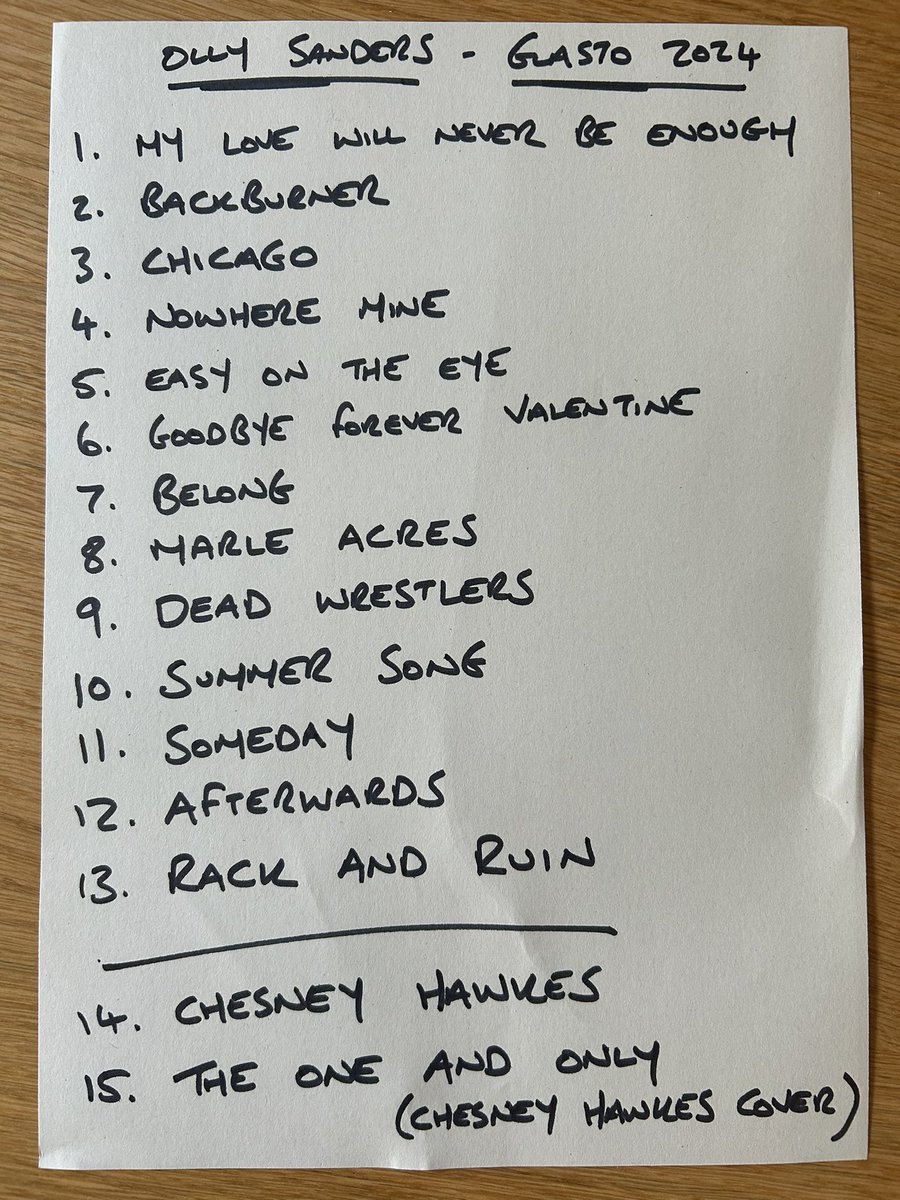 OLLY SANDERS - GLASTO 2024
1. MY LOVE WILL NEVER BE ENOUGH
2. BACKBURNER
3. CHICAGO
4. NOWHERE MINE
5. EASY ON THE EYE
6. GOODBYE FOREVER VALENTINE
7. BELONG
8. MARLE ACRES
9. DEAD WRESTLERS
10. SUMMER SONG
11. SOMEDAY
12. AFTERWARDS
13. RACK AND RUIN
14. CHESNEY HAWKES
15. THE ONE AND ONLY
(CHESNEY HAWKES COVER)